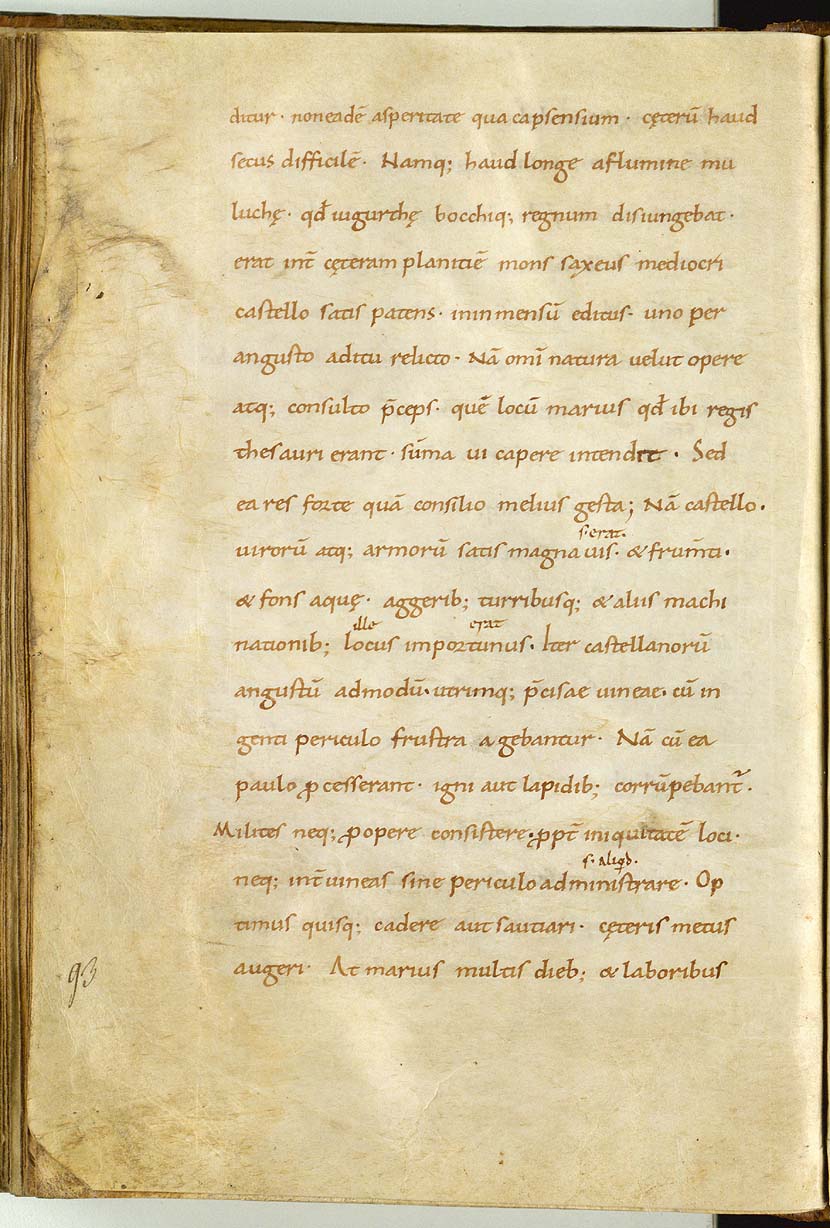 ditur· non eadē asperitate qua capsensium· cęterū haud
secus difficilē· Namq; haud longe aflumine mu
luchę· qđ uigurthę bocchiq; regnum disiungebat·
erat int̄ cęteram planitiē mons saxeus mediocri
castello satis patens· in inmensū editus· uno per
angusto aditu relicto· Nā omī natura uelut opere
atq; consulto p̄ceps· quē locū marius qđ ibi regis
thesauri erant· sūma ui capere intendit· Sed
ea res forte quā consilio melius gesta; Nā castello·
s· erat·
uirorū atq; armorū satis magna uis· & frum̄ti·
& fons aquę· aggerib; turribusq; & aliis machi
ille erat
nationib; locus importunus· Iter castellanorū
angustū admodū· utrimq; p̄cisae uineae· cū in
genti periculo frustra agebantur· Nā cū ea
paulo ꝓcesserant· igni aut lapidib; corrūpebant̄·
Milites neq; ꝓ opere consistere· ꝓpt̄ iniquitatē loci·
s· aliqđ·
neq; int̄ uineas sine periculo administrare· Op
timus quisq; cadere aut sautiari· cęteris metus
augeri· At marius multis dieb; & laboribus
93